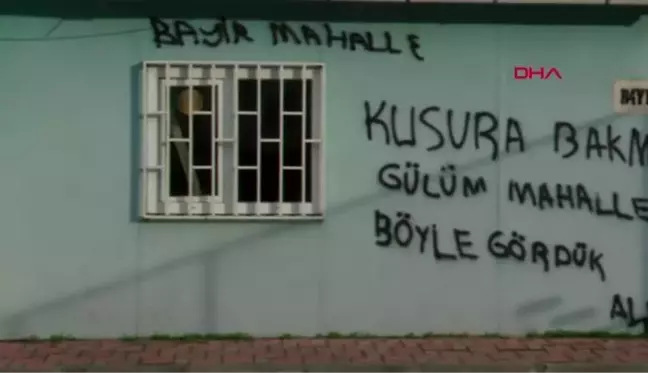 BAYIR MAHALLE
DHA
KUSURA BAKM
GÜLÜM MAHALLE
BÖYLE GÖRDÜK